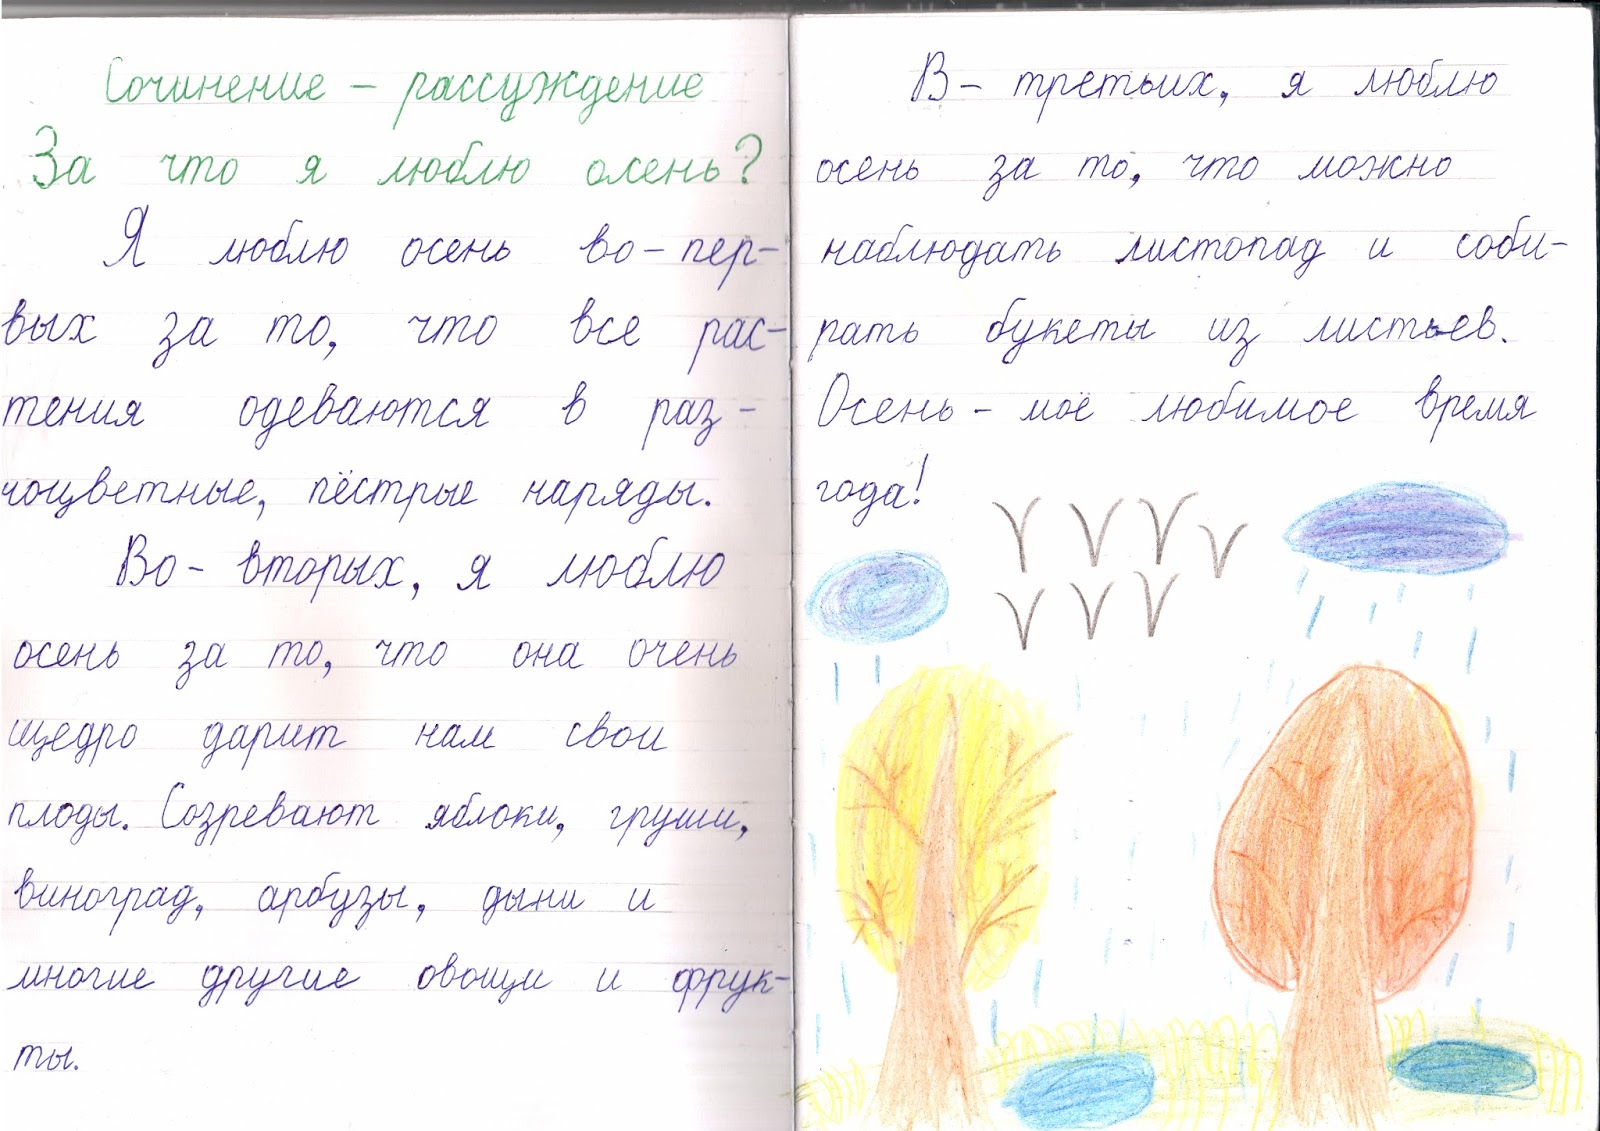 Сочинение - рассуждение
За что я люблю осень?
Я люблю осень во-пер-
вых за то, что все рас-
тения одеваются в раз-
ноцветные, пёстрые наряды.
Во-вторых, я люблю
осень за то, что она очень
щедро дарит нам свои
плоды. Созревают яблоки, груши,
виноград, арбузы, дыни и
многие другие овощи и фрук-
ты.
В-третьих, я люблю
осень за то, что можно
наблюдать листопад и соби-
рать букеты из листьев.
Осень - моё любимое время
года!